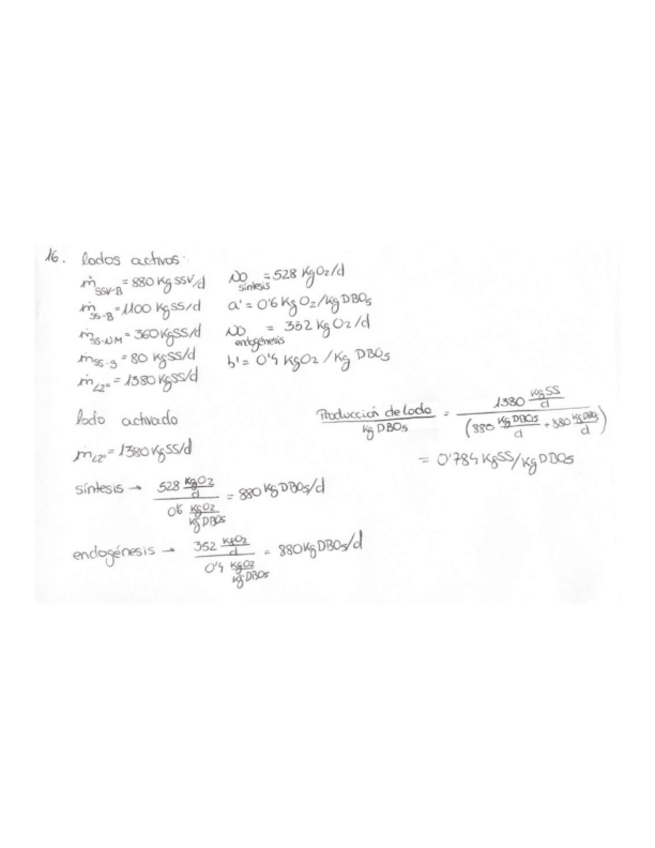 16. lodos activos:
ṁ_SSV-B = 880 Kg SSV/d
ṁ_SS-B = 1100 KgSS/d
ṁ_SS-NM = 360 KgSS/d
ṁ_SS-S = 80 KgSS/d
ṁ_L2º = 1380 KgSS/d
NO_síntesis = 528 KgO2/d
a' = 0'6 Kg O2/Kg DBO5
NO_endogénesis = 352 Kg O2/d
b' = 0'4 KgO2 / Kg DBO5
lodo activado
ṁ_L2º = 1380 KgSS/d
síntesis → (528 KgO2/d) / (0'6 KgO2/KgDBO5) = 880 Kg DBO5/d
endogénesis → (352 KgO2/d) / (0'4 KgO2/KgDBO5) = 880 Kg DBO5/d
Producción de lodo / Kg DBO5 = (1380 KgSS/d) / (880 KgDBO5/d + 880 KgDBO5/d)
= 0'784 KgSS/Kg DBO5